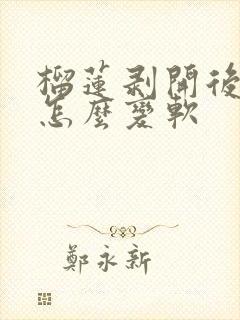 榴蓮剥開後
怎麼變軟
鄭永新